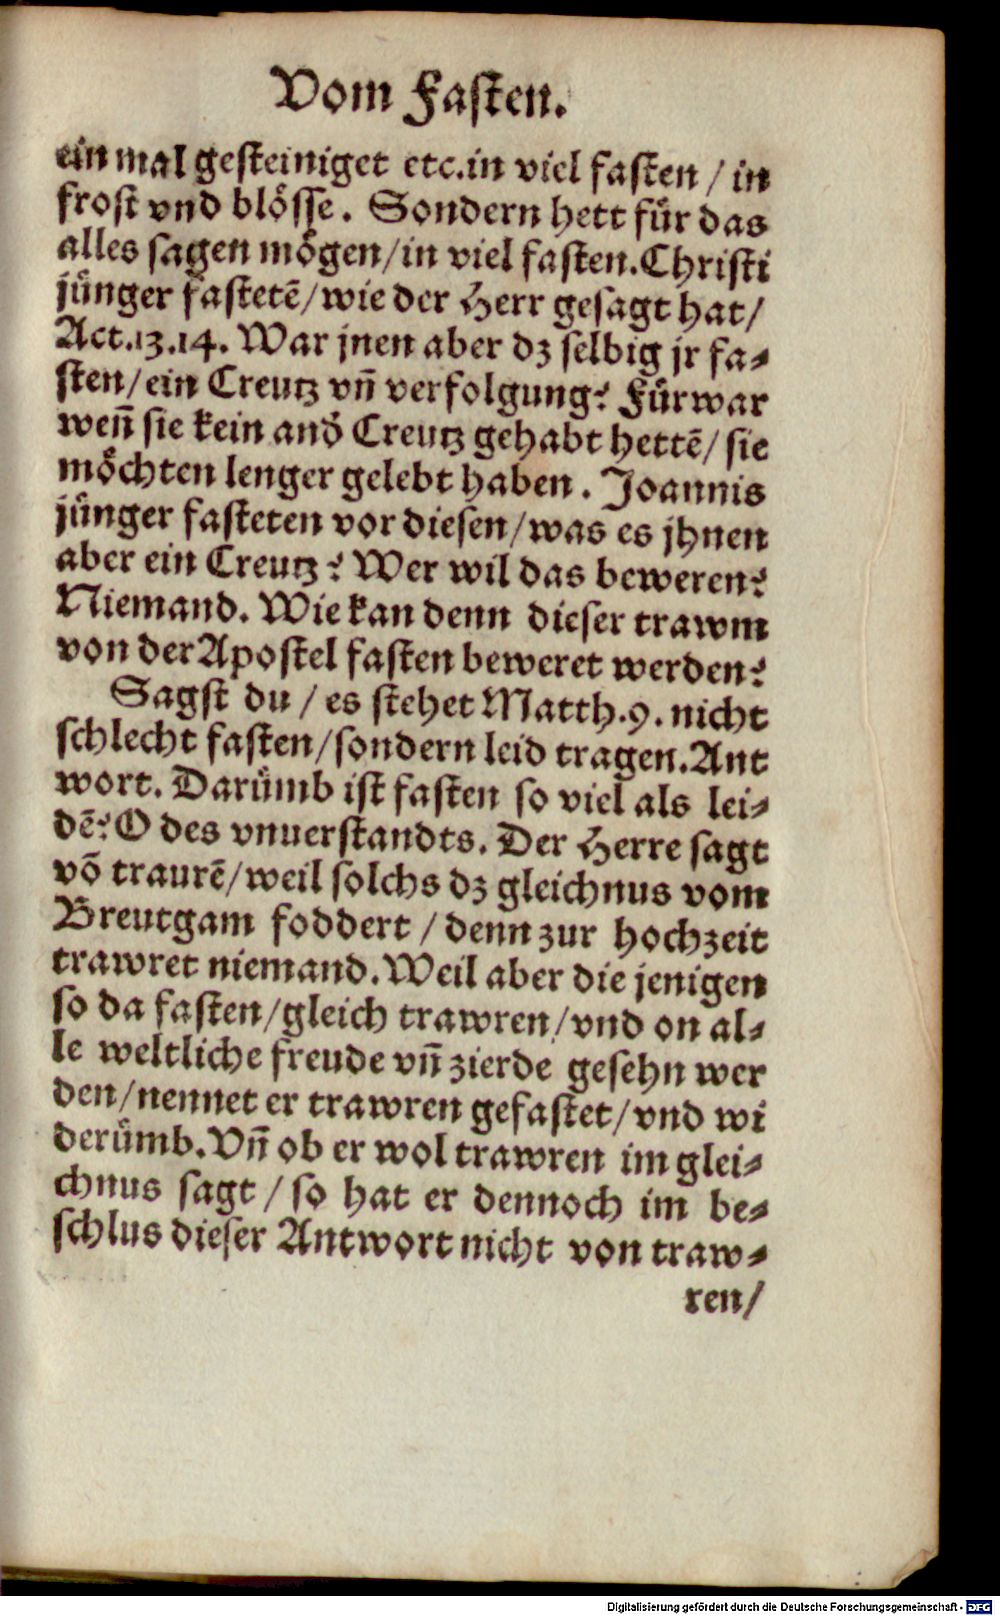 Vom Fasten.
ein mal gesteiniget etc. in viel fasten / in
frost vnd blösse. Sondern hett für das
alles sagen mögen / in viel fasten. Christi
jünger fastetē / wie der Herr gesagt hat /
Act. 13. 14. War jnen aber dz selbig jr fa⸗
sten / ein Creutz vñ verfolgung? Fürwar
weñ sie kein andˀ Creutz gehabt hettē / sie
möchten lenger gelebt haben. Joannis
jünger fasteten vor diesen / was es jhnen
aber ein Creutz? Wer wil das beweren?
Niemand. Wie kan denn dieser trawm
von der Apostel fasten beweret werden?
Sagst du / es stehet Matth. 9. nicht
schlecht fasten / sondern leid tragen. Ant
wort. Darümb ist fasten so viel als lei⸗
dē? O des vnuerstandts. Der Herre sagt
võ traurē / weil solchs dz gleichnus vom
Breutgam foddert / denn zur hochzeit
trawret niemand. Weil aber die jenigen
so da fasten / gleich trawren / vnd on al⸗
le weltliche freude vñ zierde gesehn wer
den / nennet er trawren gefastet / vnd wi
derümb. Vñ ob er wol trawren im glei⸗
chnus sagt / so hat er dennoch im be⸗
schlus dieser Antwort nicht von traw⸗
ren /
Digitalisierung gefördert durch die Deutsche Forschungsgemeinschaft - DFG